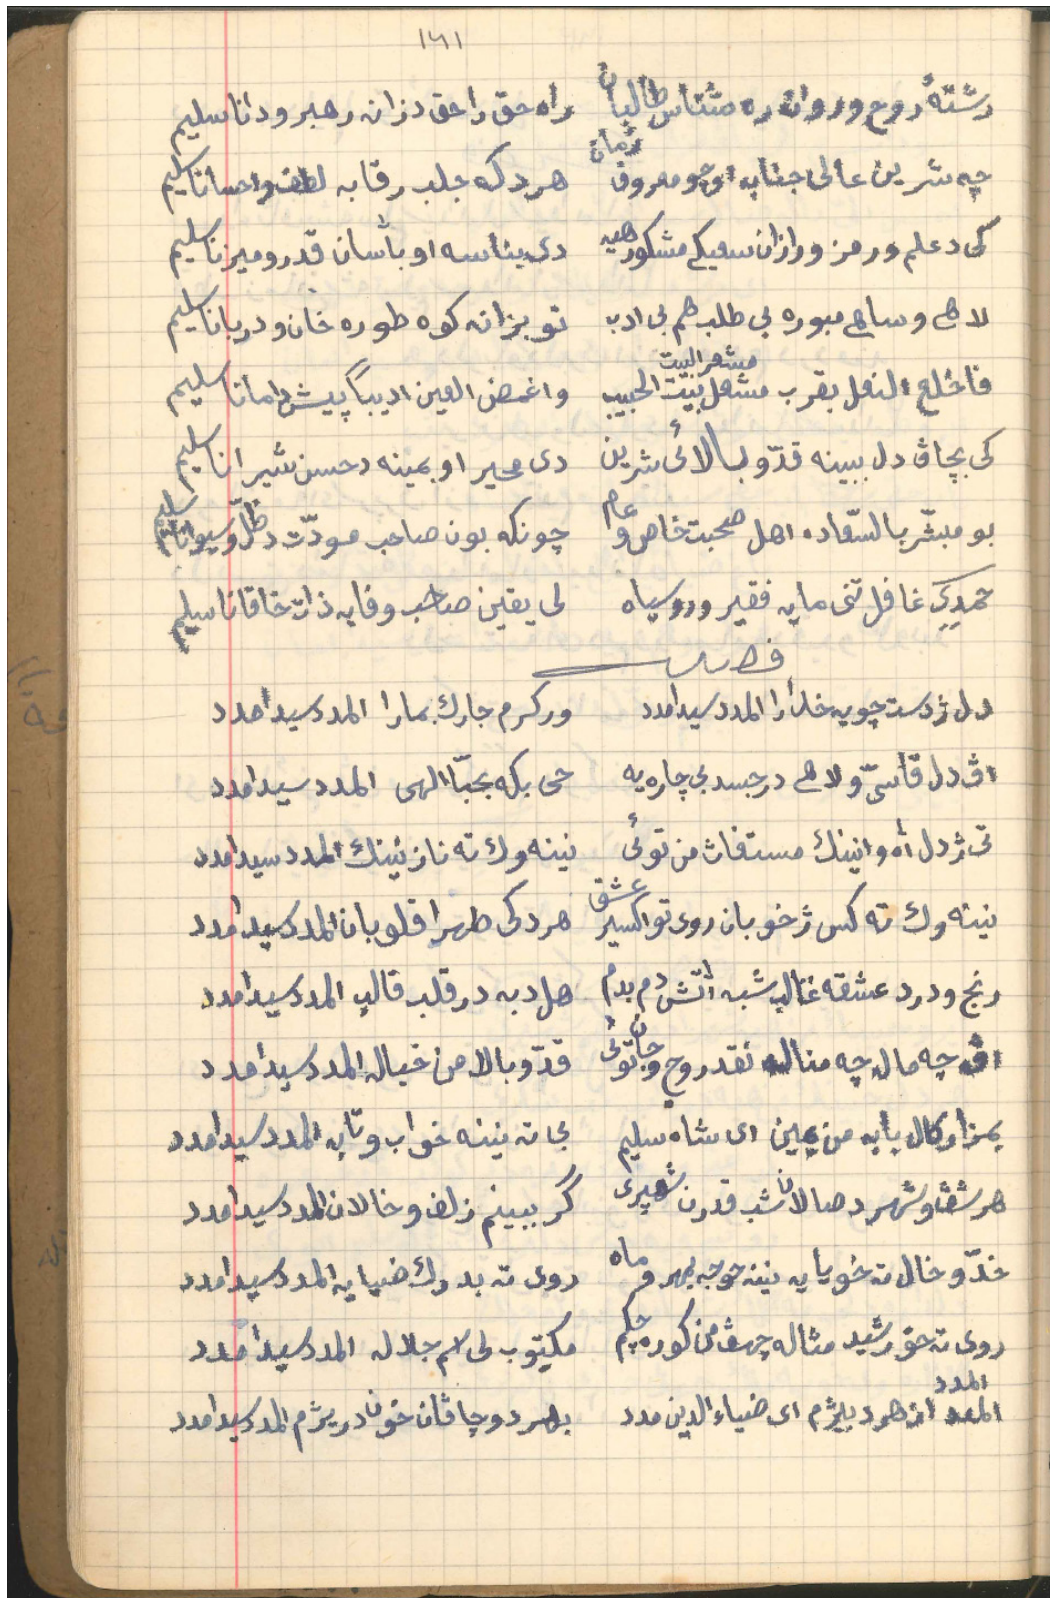 ١٦١
رشتهٔ روح و روان ره شناس طالبان راه حق را حق دزانه رهبر و دانا سلیم
چه شرین عالی جنابه اوجو معروف زمان هردکه جلب رقابه لطف و احسانا سلیم
کی دعلم و رمز و رازان سعیکی مشکور هیه دی بناسه او باشان قدر و میزنا سلیم
لاهی و ساهی مبوره بی طلب هم بی ادب تو بزانه کوه طوره خان و دربانا سلیم
فاخلع النعل بقرب مشعل بیت الحبیب واغمض العین ادیباً پیش دامانا سلیم
مشعر البیت
کی بچاڤ دل ببینه قدّ و بالائی شرین دی محیر او بمینه دحسن شیرانا سلیم
بو مبشّر بالسّعاده اهل صحبت خاص و عام چونکه بون صاحب مودّت د سلیم
حمدیێ غافل تنی مایه فقیر و روسیاه لی یقین صاحب وفایه ذات خاقانا سلیم
دل ژدست چویه خدارا المدد سید امدد ور کرم جارك بمارا المدد سید امدد
اڤ دل قاسیّ و لاهی درجسد بی چاره یه حی بکه بحبّا الهی المدد سید امدد
تی ژدل اه و انینك مستغاث من توئی نینه وك ته نازنینك المدد سید امدد
نینه وك ته کس ژخوبان روی تو اکسیر عشق هردکی طهرا قلوبان المدد سید امدد
رنج و درد عشقه غالب شبه اتش دم بدم هلدبه درقلب قالب المدد سید امدد
اڤ چه مال چه مناله نقد روح و جان توئی قدّ و بالا من خیاله المدد سید امدد
بمزار کال بابه من یمین ای شاه سلیم بی ته نینه خواب و تابه المدد سید امدد
هر شڤ و شهر دصالان شب قدرن شهپری گر ببینم زلف و خالان المدد سید امدد
خدّ و خال ته خویایه نینه حوجه بمهر و ماه روی ته بدرك ضیایه المدد سید امدد
روی ته خورشید مثاله چهڤ من کوره چبکم مکتوب لی اسم جلاله المدد سید امدد
المدد از هردبیژم ای ضیاء الدین مدد بهر دو چاڤان خون دریژم المدد سید امدد
المدد